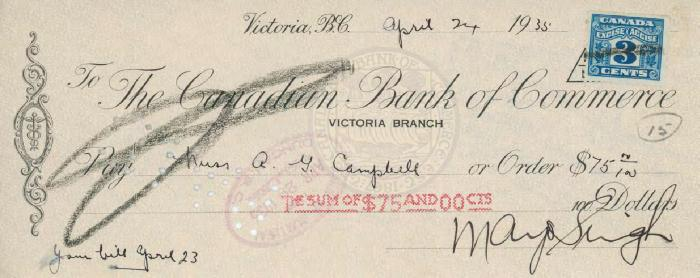 Victoria, B.C. April 24 1935
CANADA
EXCISE ACCISE
3
CENTS
To The Canadian Bank of Commerce
VICTORIA BRANCH
15
Pay Miss A. Y. Campbell or Order $75 00/100
THE SUM OF $75 AND 00 CTS
100 Dollars
Mayo Singh
Your bill April 23